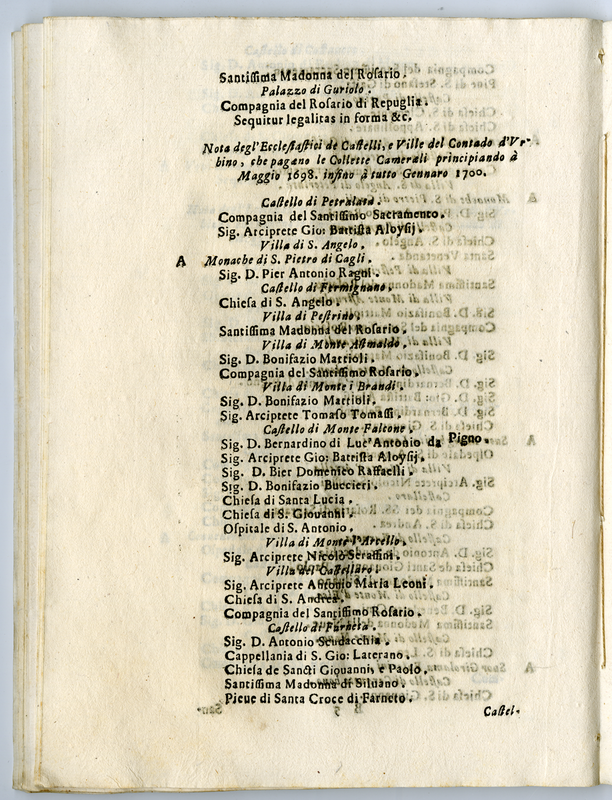 Santissima Madonna del Rosario.
Palazzo di Guriolo.
Compagnia del Rosario di Repuglia.
Sequitur legalitas in forma &c.
Nota degl'Ecclesiastici de Castelli, e Ville del Contado d'Ur-
bino, che pagano le Collette Camerali principiando à
Maggio 1698. infino à tutto Gennaro 1700.
Castello di Petralata.
Compagnia del Santissimo Sacramento.
Sig. Arciprete Gio: Battista Aloysij.
Villa di S. Angelo.
A Monache di S. Pietro di Cagli.
Sig. D. Pier Antonio Ragni.
Castello di Fermignano.
Chiesa di S. Angelo.
Villa di Pestrino.
Santissima Madonna del Rosario.
Villa di Monte Asinaldo.
Sig. D. Bonifazio Mattioli.
Compagnia del Santissimo Rosario.
Villa di Monte i Brandi.
Sig. D. Bonifazio Mattioli.
Sig. Arciprete Tomaso Tomassi.
Castello di Monte Falcone.
Sig. D. Bernardino di Luc'Antonio da Pigno.
Sig. Arciprete Gio: Battista Aloysij.
Sig. D. Bier Domenico Raffaelli.
Sig. D. Bonifazio Buccieri.
Chiesa di Santa Lucia.
Chiesa di S. Giovanni.
Ospitale di S. Antonio.
Villa di Monte l'Arello.
Sig. Arciprete Nicolò Serafini.
Villa del Castellaro.
Sig. Arciprete Antonio Maria Leoni.
Chiesa di S. Andrea.
Compagnia del Santissimo Rosario.
Castello di Farneta.
Sig. D. Antonio Scudacchia.
Cappellania di S. Gio: Laterano.
Chiesa de Sancti Giovanni, e Paolo.
Santissima Madonna di Siluano.
Pieue di Santa Croce di Farneto.
Castel-